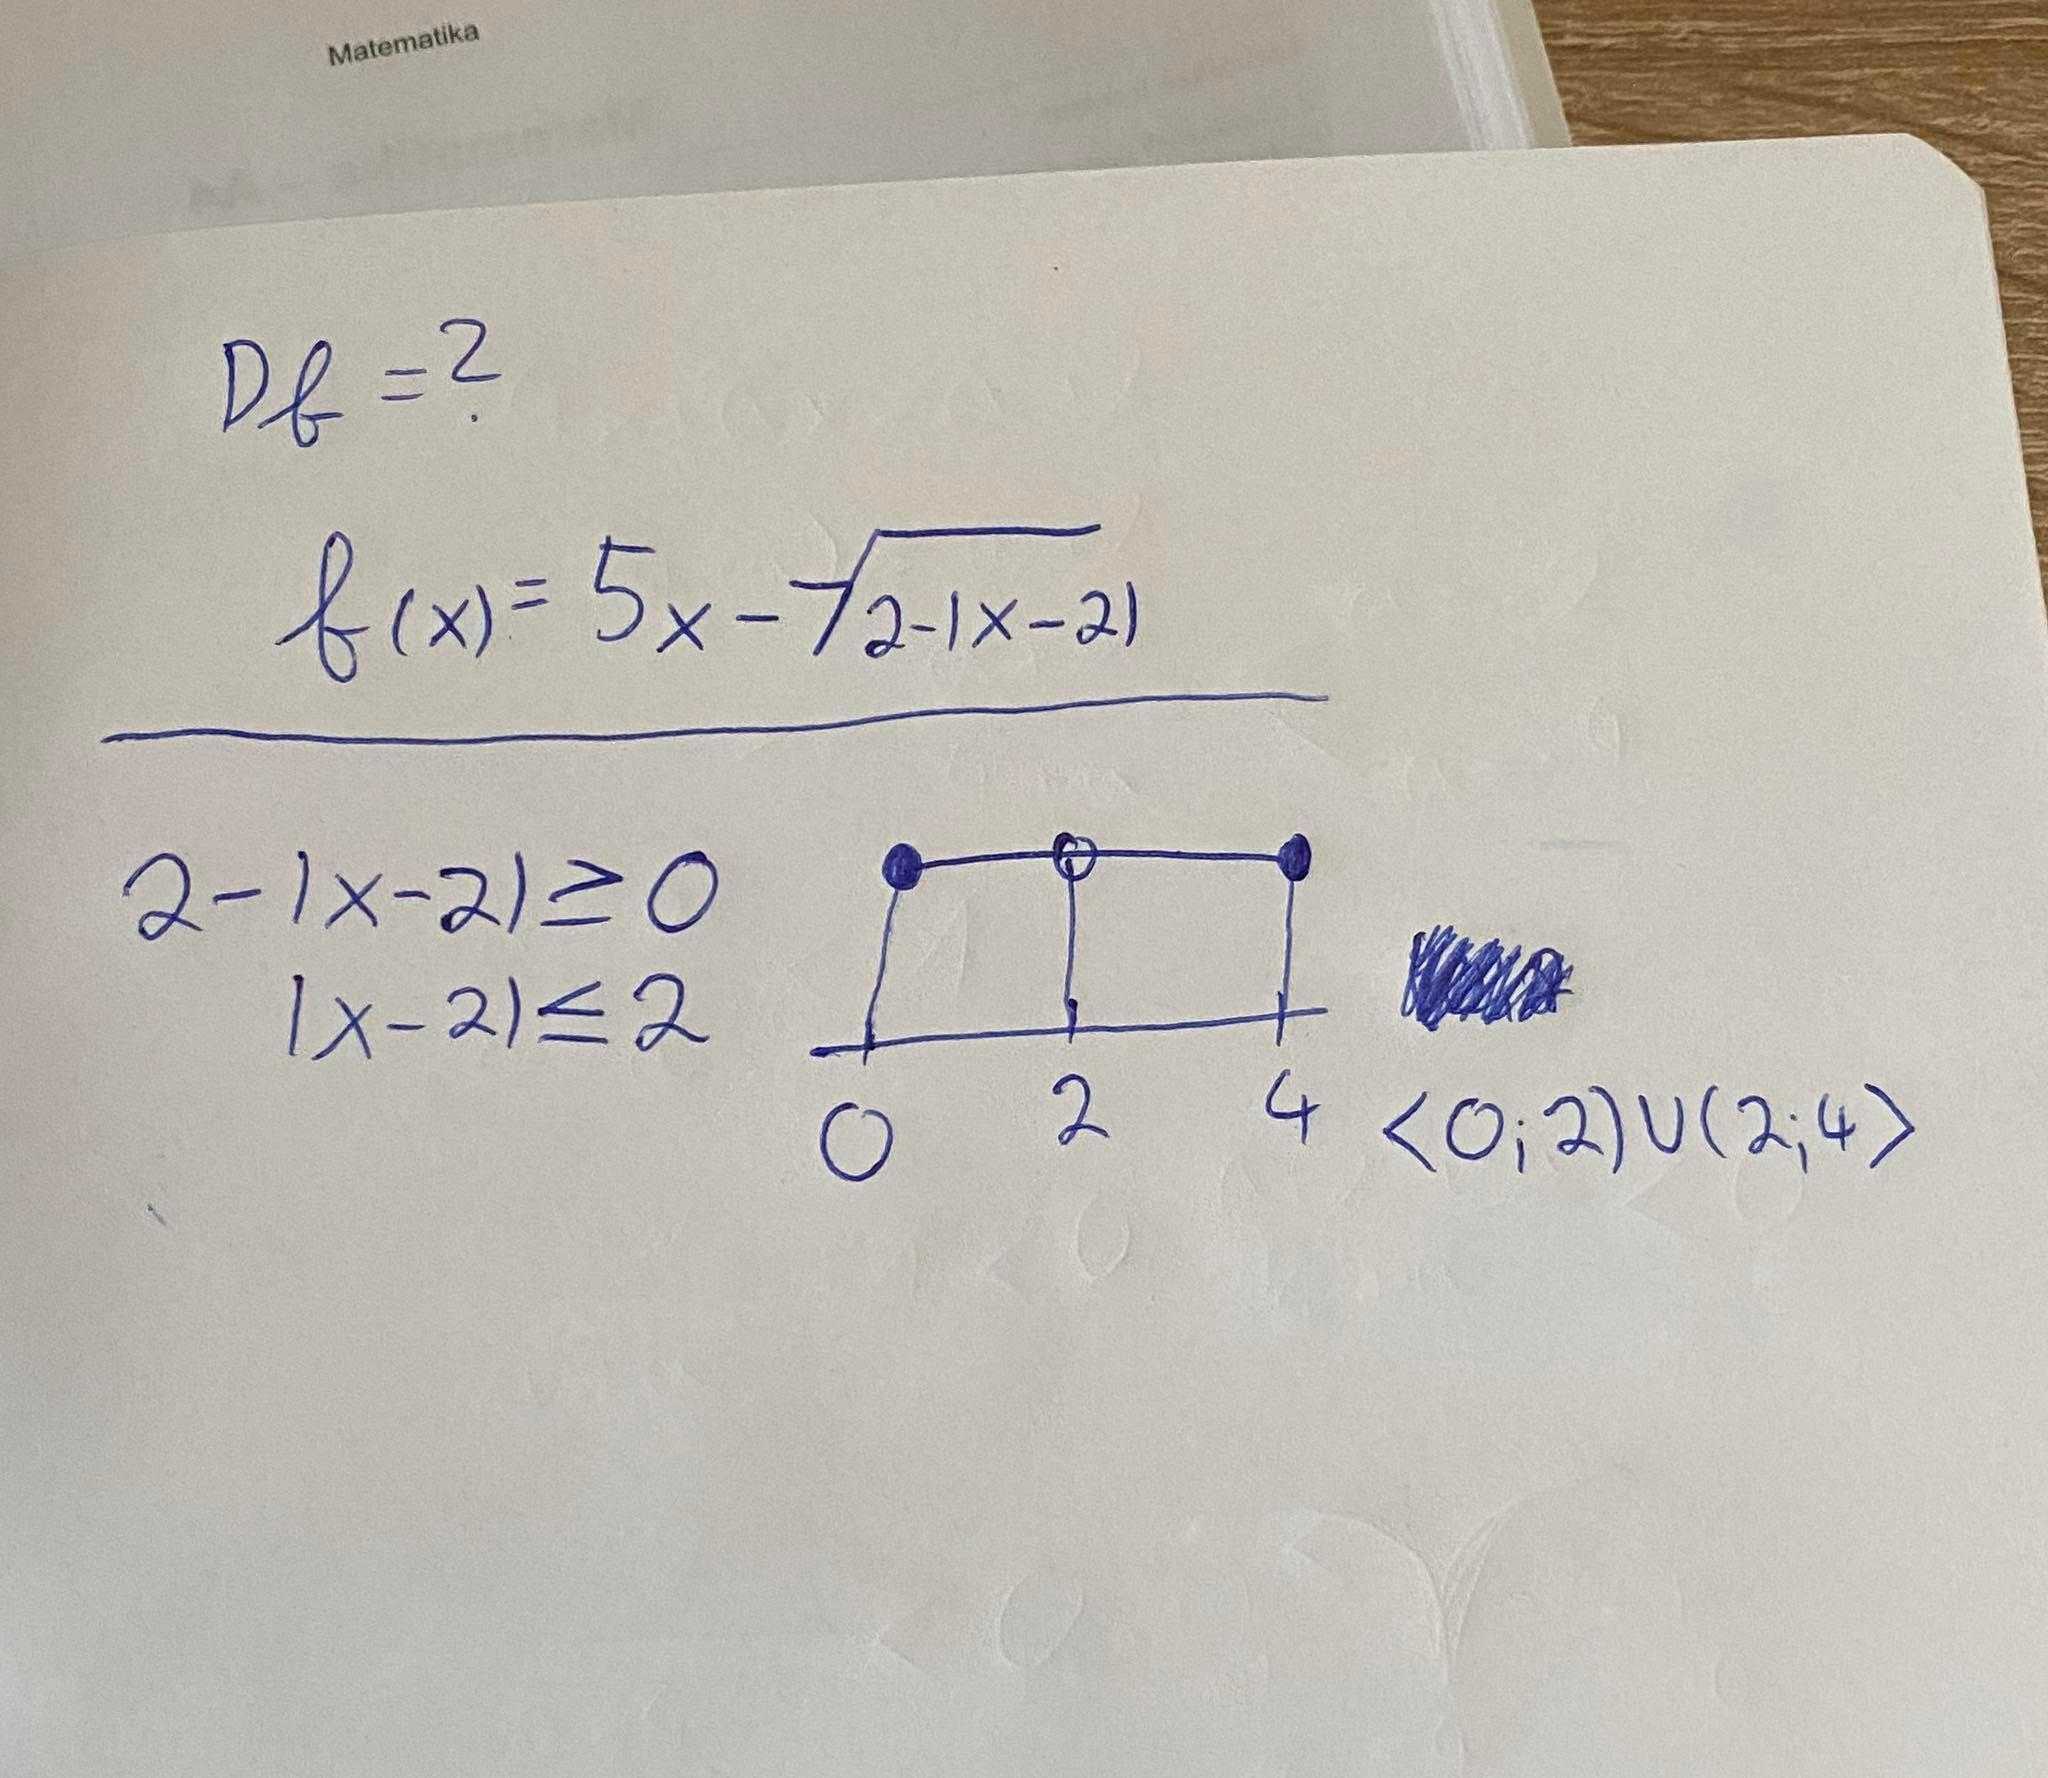 Matematika
Df = ?
f(x) = 5x - √2-|x-2|
2-|x-2| ≥ 0
|x-2| ≤ 2
0 2 4 <0;2)∪(2;4>